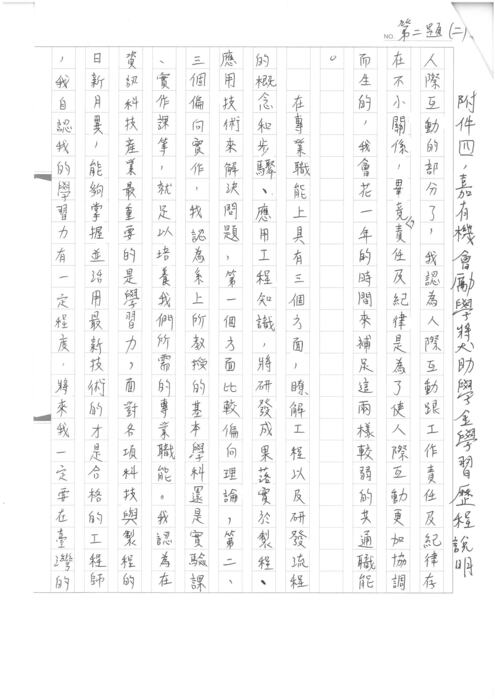 NO. 第二題(二)、
附件四，嘉有機會勵學獎助學金學習歷程說明
人際互動的部分了，我認為人際互動跟工作責任及紀律存
在不小關係，畢竟責任及紀律是為了使人際互動更加協調
而生的，我會花一年的時間來補足這兩樣較弱的共通職能
。
在專業職能上具有三個方面，瞭解工程以及研發流程
的概念和步驟、應用工程知識，將研發成果落實於製程、
應用技術來解決問題，第一個方面比較偏向理論，第二、
三個偏向實作，我認為系上所教授的基本學科還是實驗課
、實作課等，就足以培養我們所需的專業職能。我認為在
資訊科技產業最重要的是學習力，面對各項科技與製程的
日新月異，能夠掌握並活用最新技術的才是合格的工程師
，我自認我的學習力有一定程度，將來我一定要在臺灣的